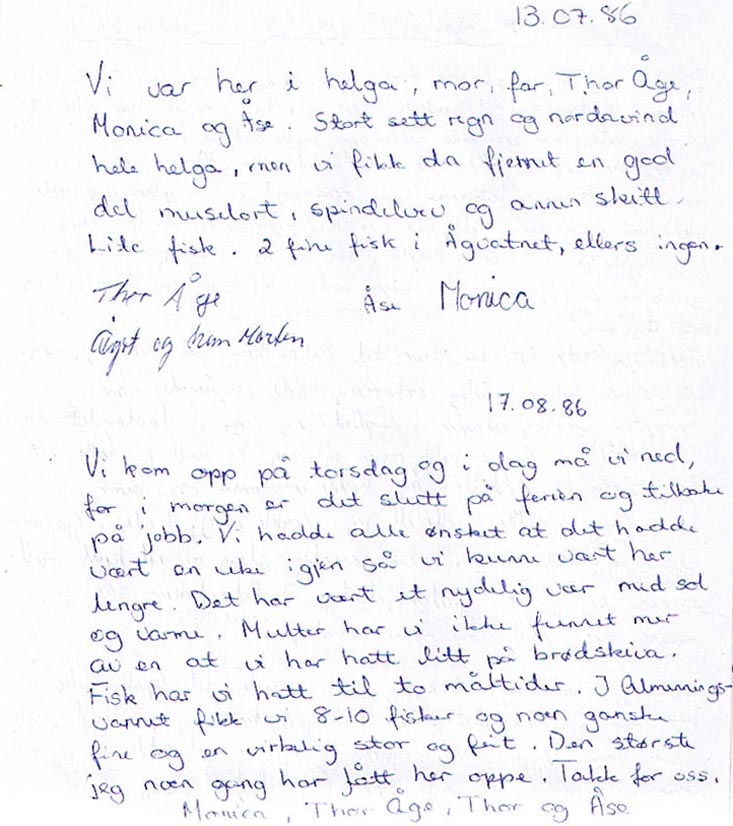 13.07.86
Vi var her i helga, mor, far, Thor Åge,
Monica og Åse. Stort sett regn og nordavind
hele helga, men vi fikk da fjernet en god
del muselort, spindelvev og annen skitt.
Lite fisk. 2 fine fisk i Ågvatnet, ellers ingen.
Thor Åge Åse Monica
og Morten
17.08.86
Vi kom opp på torsdag og i dag må vi ned,
for i morgen er det slutt på ferien og tilbake
på jobb. Vi hadde alle ønsket at det hadde
vært en uke igjen så vi kunne vært her
lengre. Det har vært et nydelig vær med sol
og varme. Multer har vi ikke funnet mer
av en at vi har hatt litt på brødskiva.
Fisk har vi hatt til to måltider. I Almennings-
vannet fikk vi 8-10 fisker og noen ganske
fine og en virkelig stor og feit. Den største
jeg noen gang har fått her oppe. Takk for oss.
Monica, Thor Åge, Thor og Åse